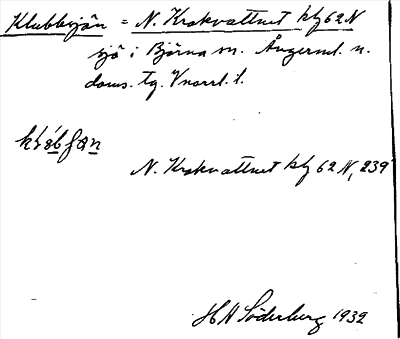 Klubbsjön = N. Krokvattnet kbl 62 N
sjö i Björna sn. Ångerml. n.
doms. tg. Vnorrl. l.
N. Krokvattnet kbl 62 N, 239
H A Söderberg 1932